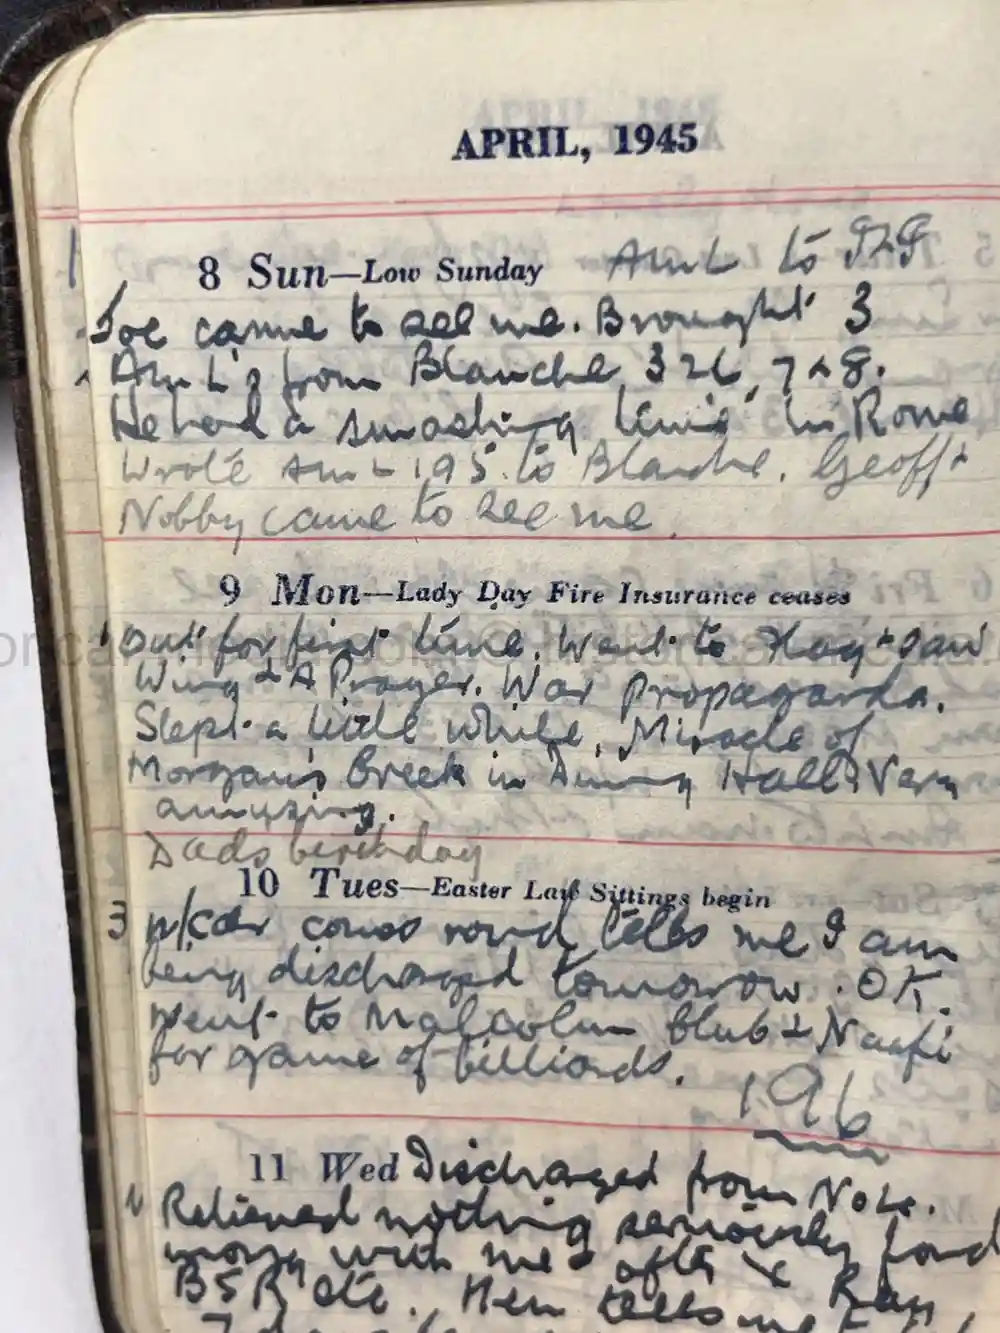 APRIL, 1945
8 Sun—Low Sunday AmL to
Joe came to see me. Brought 3
AmL's from Blanche 326, 7 & 8.
He had a smashing time in Rome
Wrote AmL 195 to Blanche. Geoff &
Nobby came to see me.
9 Mon—Lady Day Fire Insurance ceases
Out for first time. Went to Flag & saw
Wing & A Prayer. War Propaganda.
Slept a little while. Miracle of
Morgan's Creek in Dining Hall. Very
amusing.
Dads birthday
10 Tues—Easter Law Sittings begin
3 W/Cdr comes round tells me I am
being discharged tomorrow. OK.
Went to Malcolm Club & Naafi
for game of billiards.
196
11 Wed Discharged from No 4.
Relieved nothing seriously found
wrong with me after X Ray,
BSR etc. Then tells me